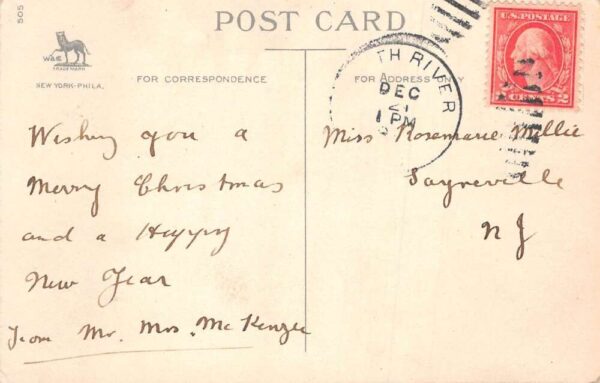 505
POST CARD
W&B
TRADE MARK
NEW YORK-PHILA.
FOR CORRESPONDENCE
FOR ADDRESS ONLY
TH RIVER
DEC
21
1 PM
U.S. POSTAGE
2 CENTS 2
Wishing you a
Merry Christmas
and a Happy
New Year
From Mr. Mrs. McKenzie
Miss Rosemarie Millie
Sayreville
N J